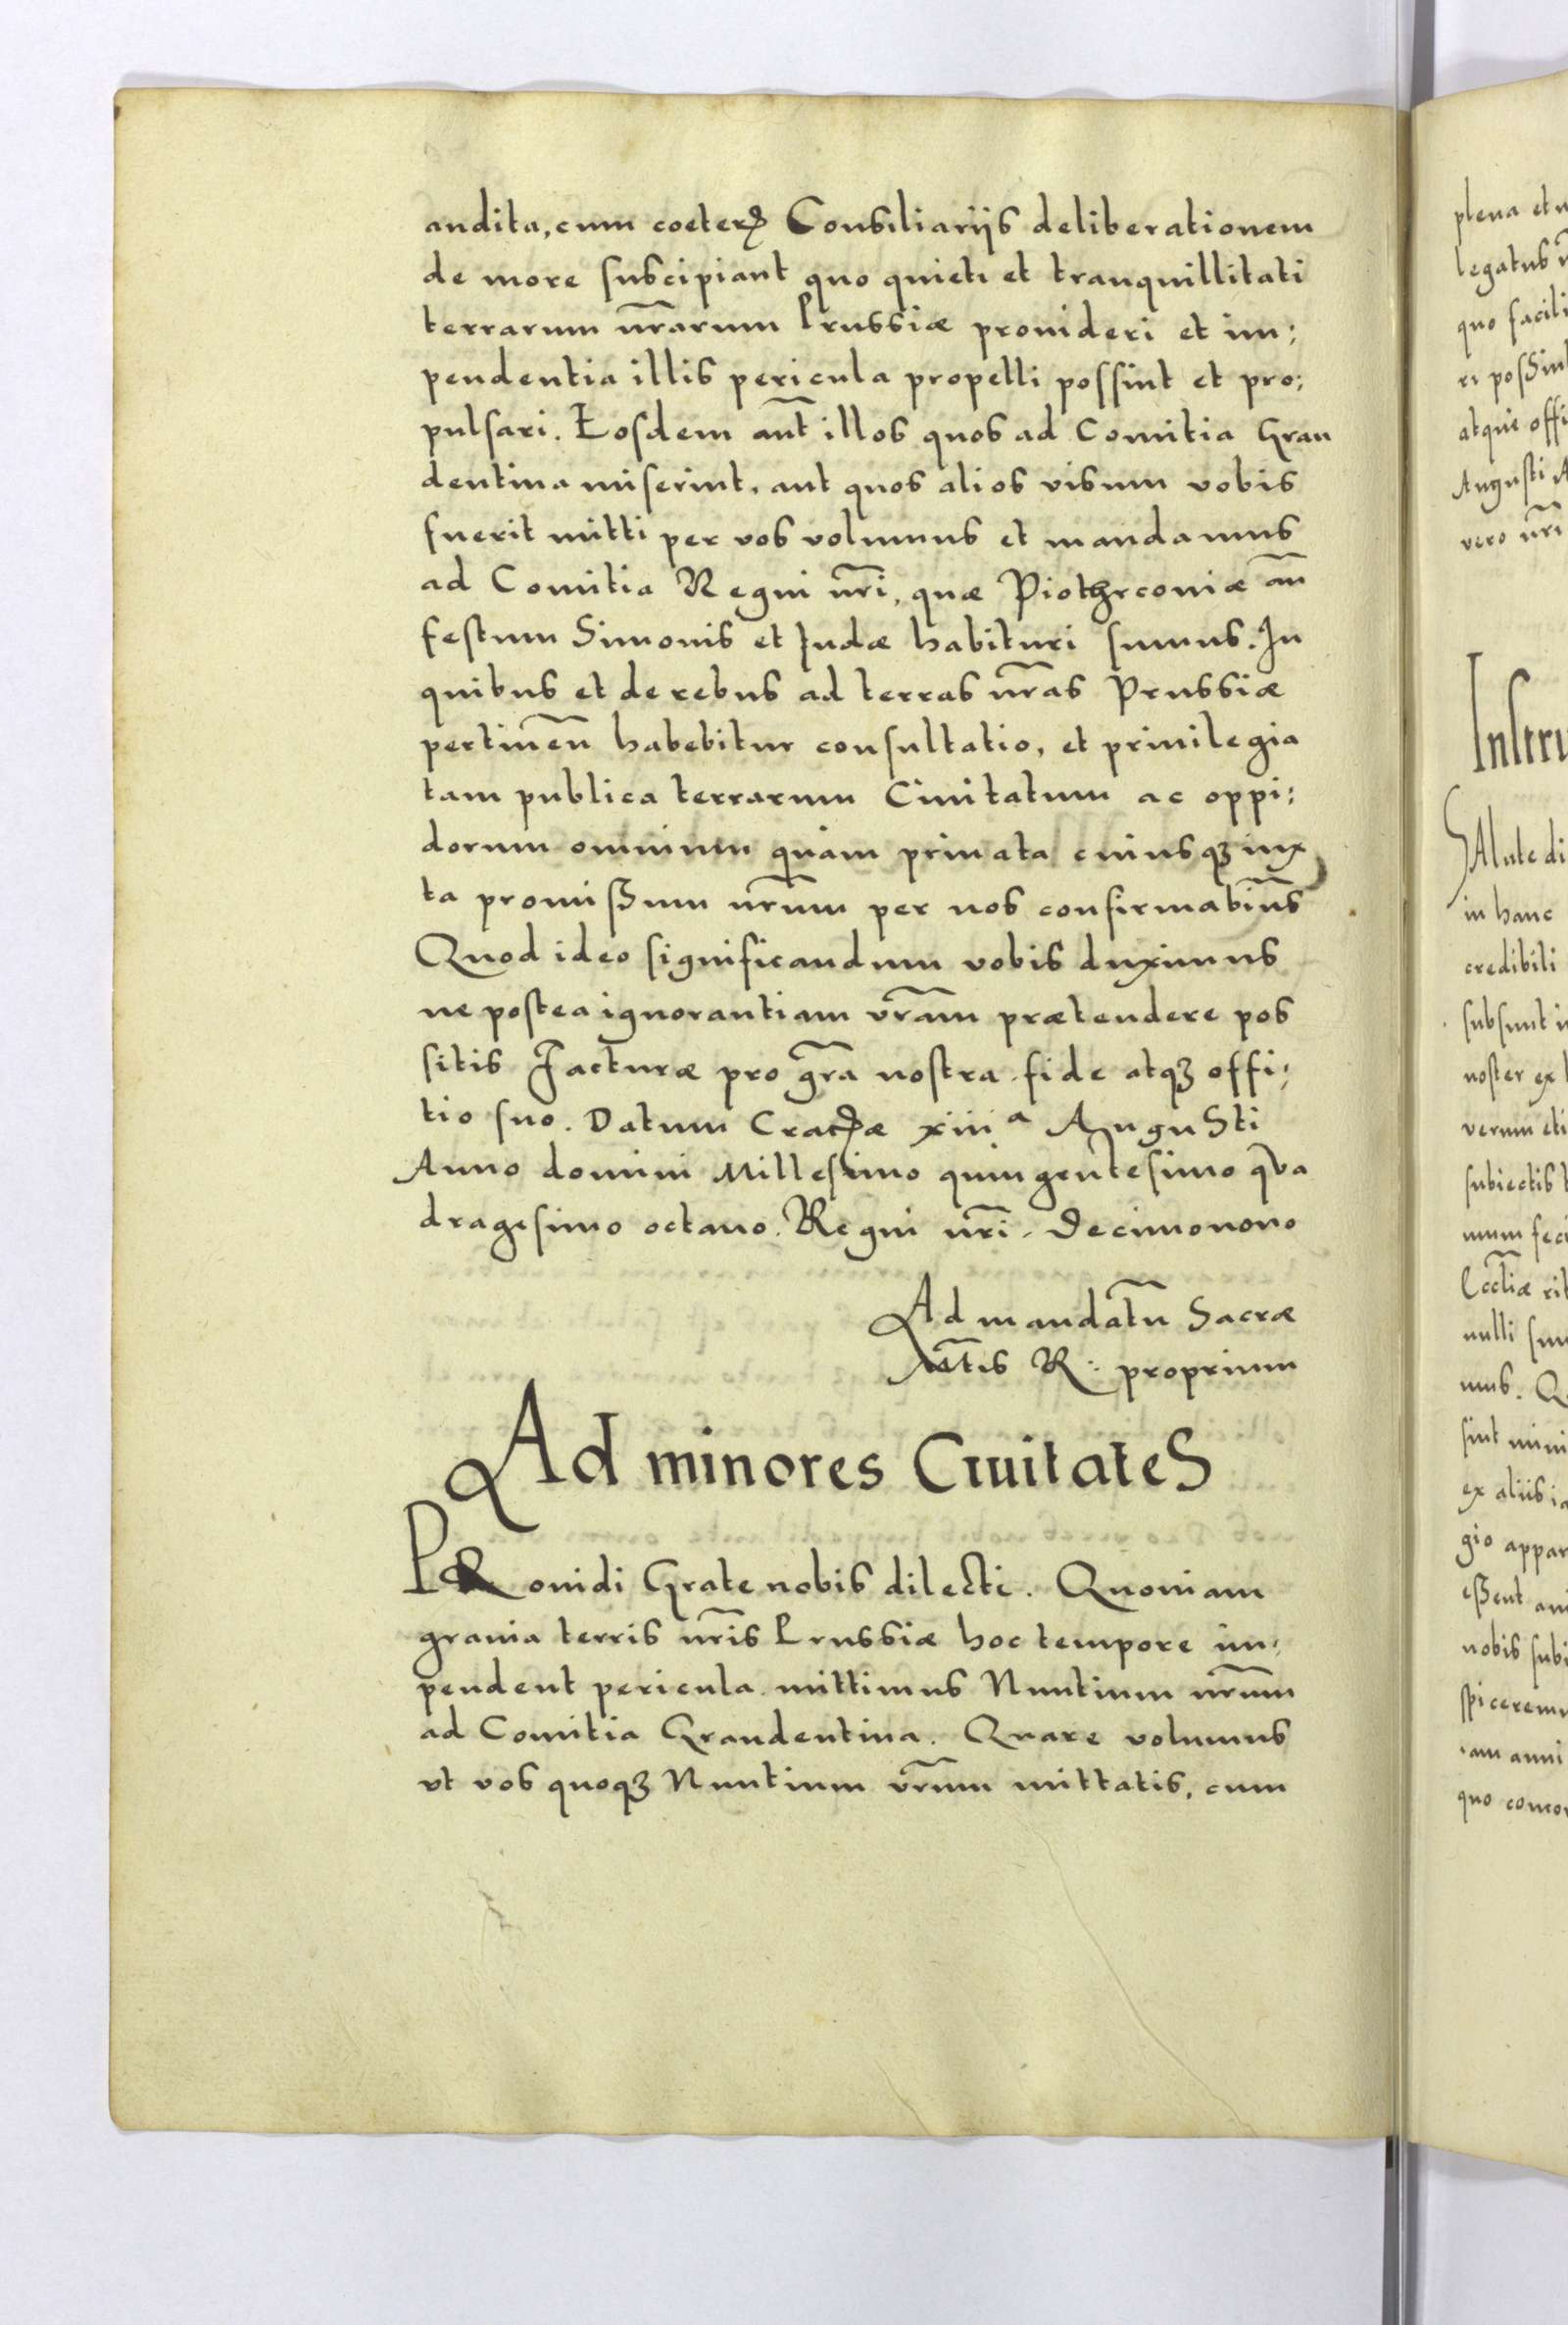 audita, cum coeterꝭ Consiliarijs deliberationem
de more suscipiant quo quieti et tranquillitati
terrarum nr̃arum Prussiæ prouideri et im;
pendentia illis pericula propelli possint et pro;
pulsari. Eosdem aut̃ illos quos ad Comitia Grau
dentina miserint, aut quos alios visum vobis
fuerit mitti per vos volumus et mandamus
ad Comitia Regni nr̃i, quæ Piothrconiæ añ
festum Simonis et Judæ habituri sumus. In
quibus et de rebus ad terras nr̃as Prussiæ
pertineñ habebitur consultatio, et priuilegia
tam publica terrarum Ciuitatum ac oppi;
dorum omnium quam priuata cuiusqꝫ iux
ta promißum nr̃um per nos confirmabim̃s
Quod ideo significandum vobis duximus
ne postea ignorantiam vr̃am prætendere pos
sitis Facturæ pro gr̃a nostra fide atqꝫ offi;
tio suo. Datum Cracꝭæ xiii a AuguSti
Anno domini Millesimo quingentesimo qua
dragesimo octauo. Regni nr̃i. Decimonono
Ad mandatũ Sacræ
Mt̃is R: proprium
Ad minores CiuitateS
PRouidi Grate nobis dilecti. Quoniam
grauia terris nr̃is Prussiæ hoc tempore im;
pendent pericula mittimus Nuntium nr̃um
ad Comitia Graudentina. Quare volumus
vt vos quoqꝫ Nuntium vr̃um mittatis, cum
plena et
legatus
quo facili
ri poßint
atque offi
Augusti
vero nr̃i
Instru
SAlute di
in hanc
credibili
subsunt
noster ex
verum eti
subiectis
mum feci
Eccl̃iæ rit
nulli sum
mus. Q
sint mini
ex aliis ia
gio appar
eßent
nobis subi
spiceremu
iam anni
quo concor